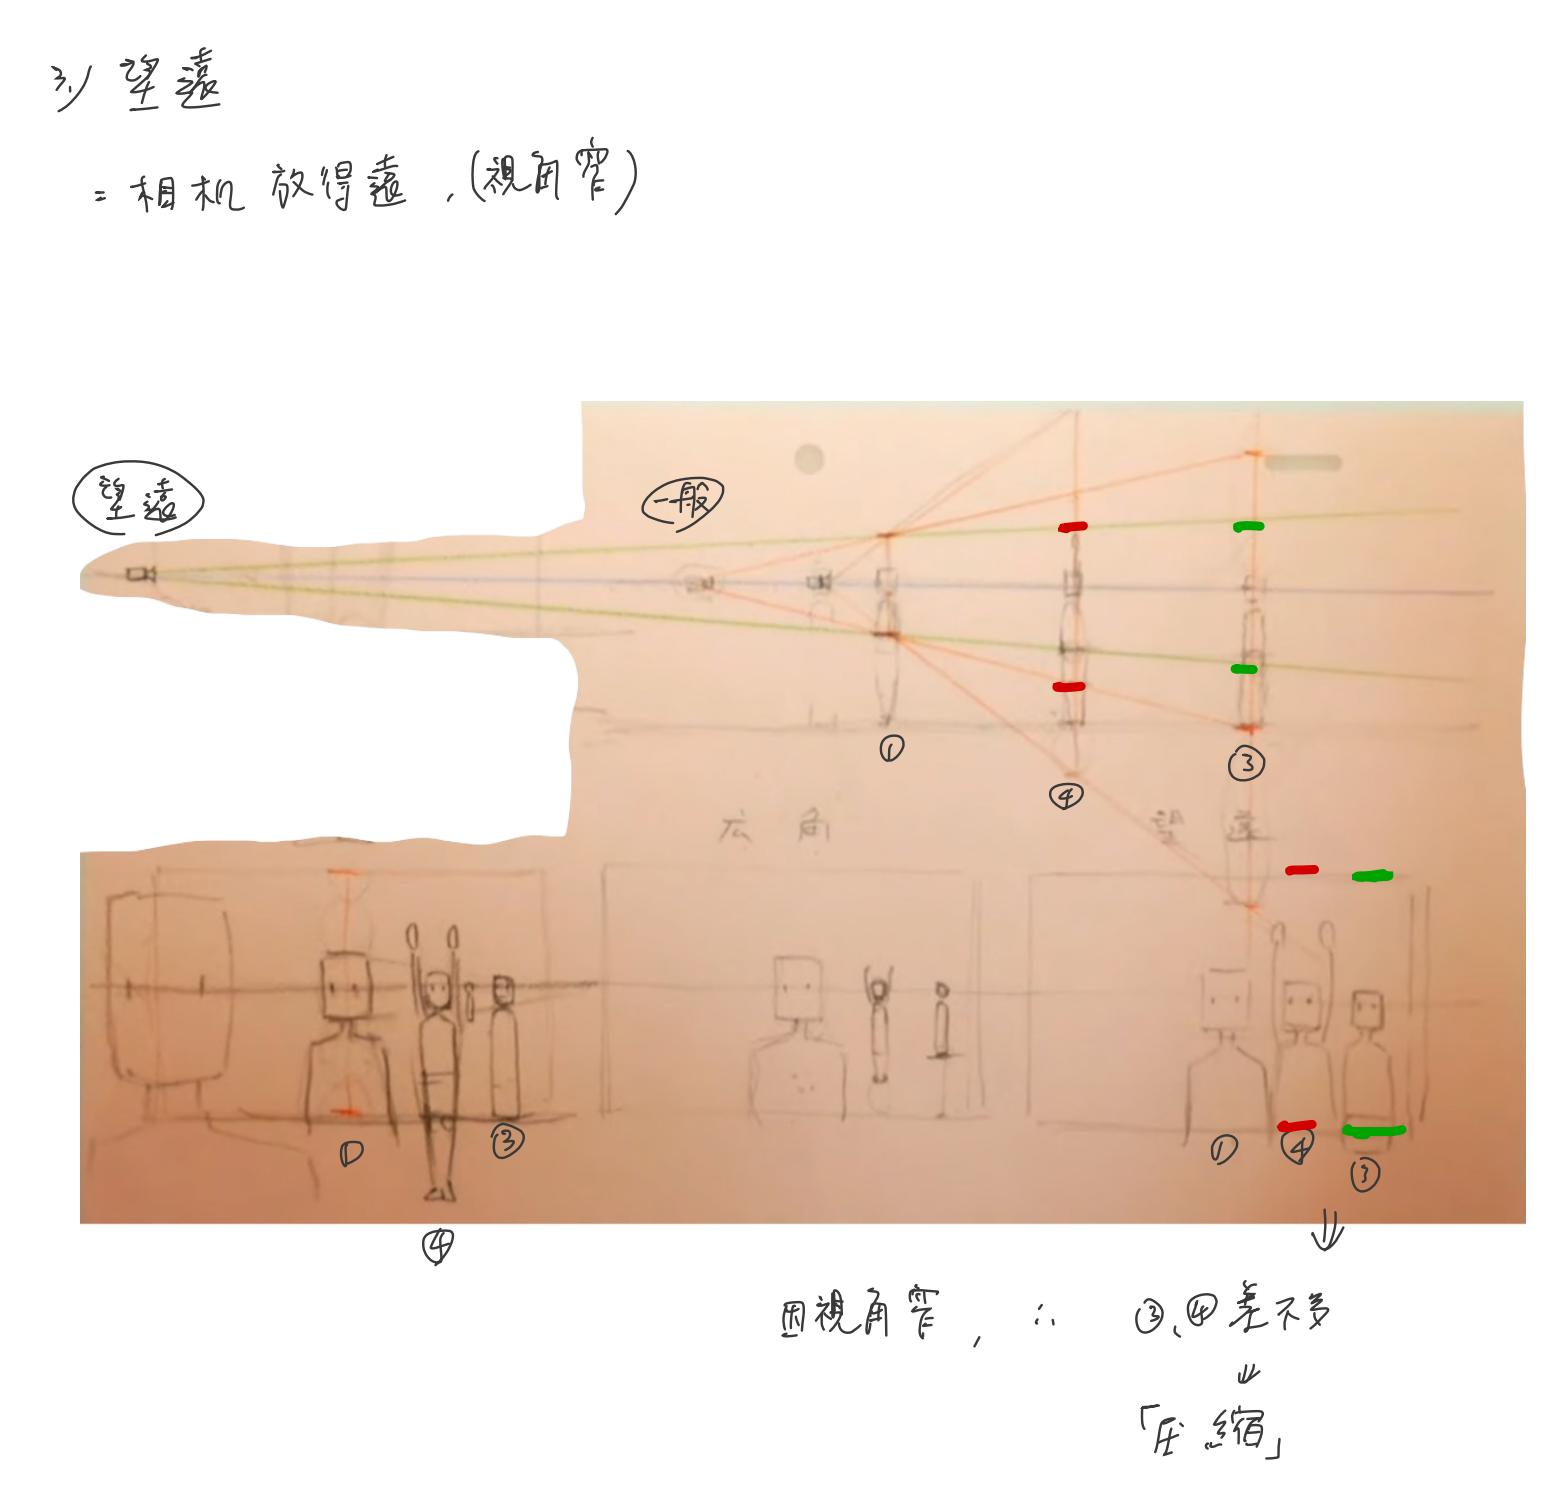 3.) 望遠
= 相机 放得遠 , (視角窄)
望遠
一般
①
④
③
広 角
望 遠
① ③
④
① ④ ③
因視角窄, ∴ ③、④差不多
「圧縮」